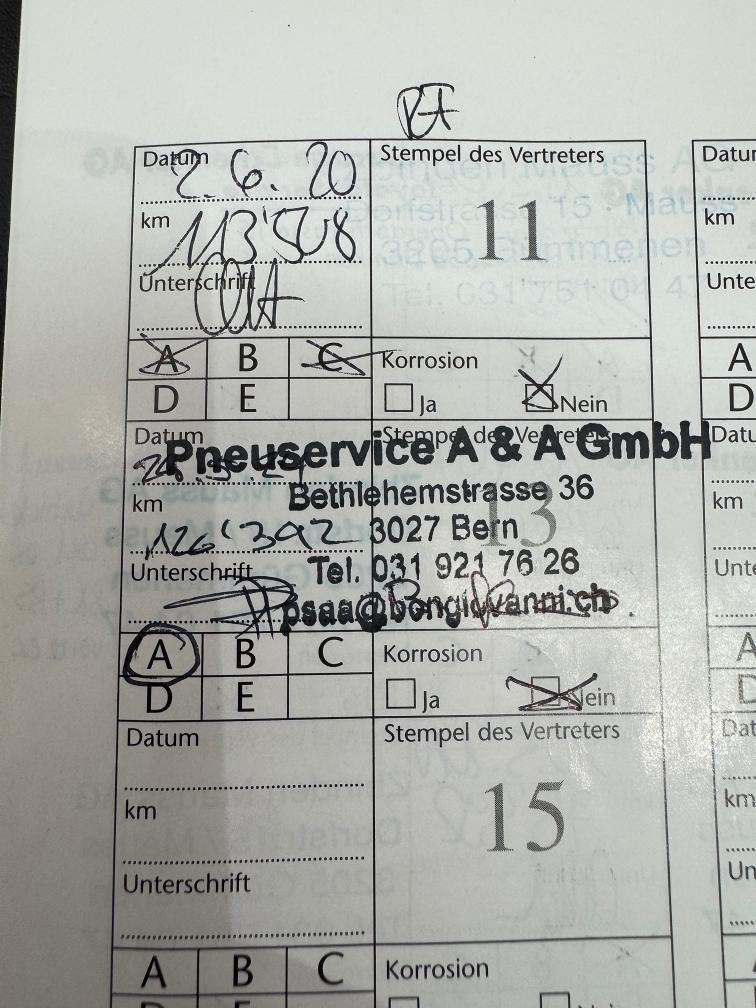 Datum
2.6.20
Stempel des Vertreters
km
113'508
11
Unterschrift
A B C
Korrosion
D E
Ja
Nein
Datum
Stempel des Vertreters
Pneuservice A & A GmbH
Bethlehemstrasse 36
km
13
126'392
3027 Bern
Unterschrift
Tel. 031 921 76 26
psaa@bongiovanni.ch
A B C
Korrosion
D E
Ja
Nein
Datum
Stempel des Vertreters
km
15
Unterschrift
A B C
Korrosion
km
A
D
km
A
km